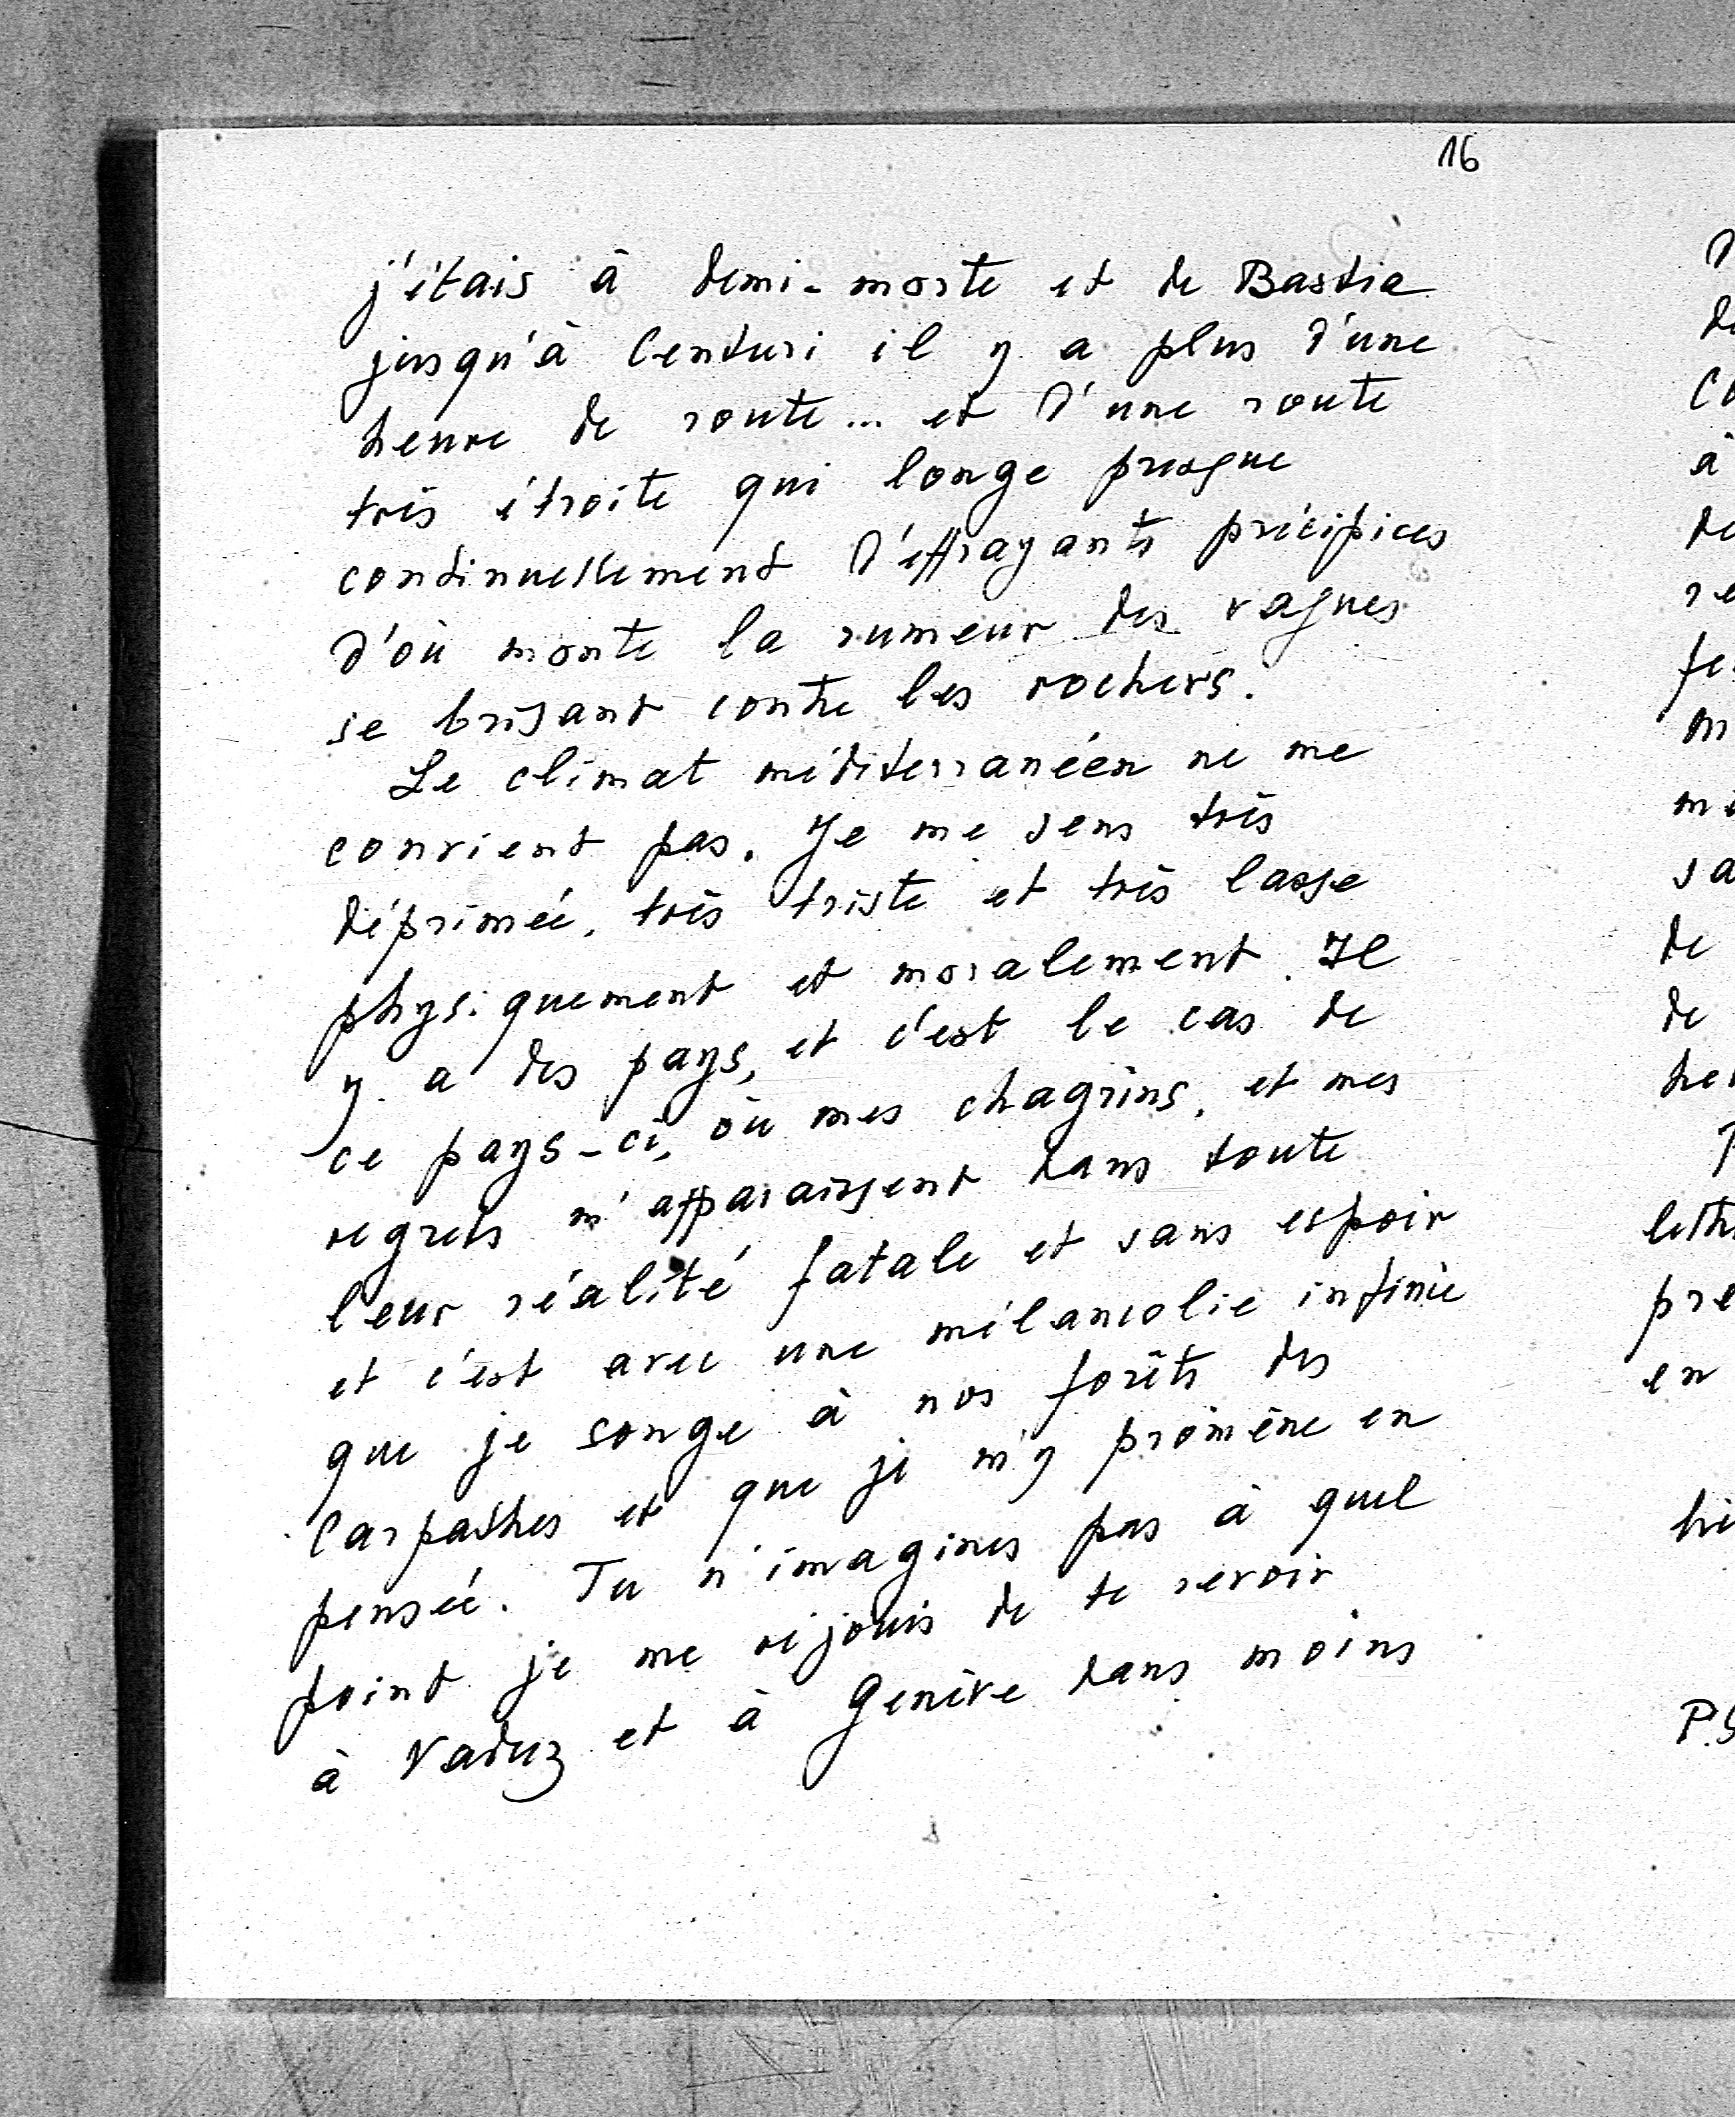 16
j'étais à demi-morte et de Bastia
jusqu'à Centuri il y a plus d'une
heure de route... et d'une route
très étroite qui longe presque
continuellement d'effrayants précipices
d'où monte la rumeur des vagues
se brisant contre les rochers.
Le climat méditerranéen ne me
convient pas. Je me sens très
déprimée, très triste et très lasse
physiquement et moralement. Il
y a des pays, et c'est le cas de
ce pays-ci, où mes chagrins, et mes
regrets m'apparaissent dans toute
leur réalité fatale et sans espoir
et c'est avec une mélancolie infinie
que je songe à nos forêts des
Carpathes et que je m'y promène en
pensée. Tu n'imagines pas à quel
point je me réjouis de te revoir
à Vaduz et à Genève dans moins
à
de
de
en
P.S